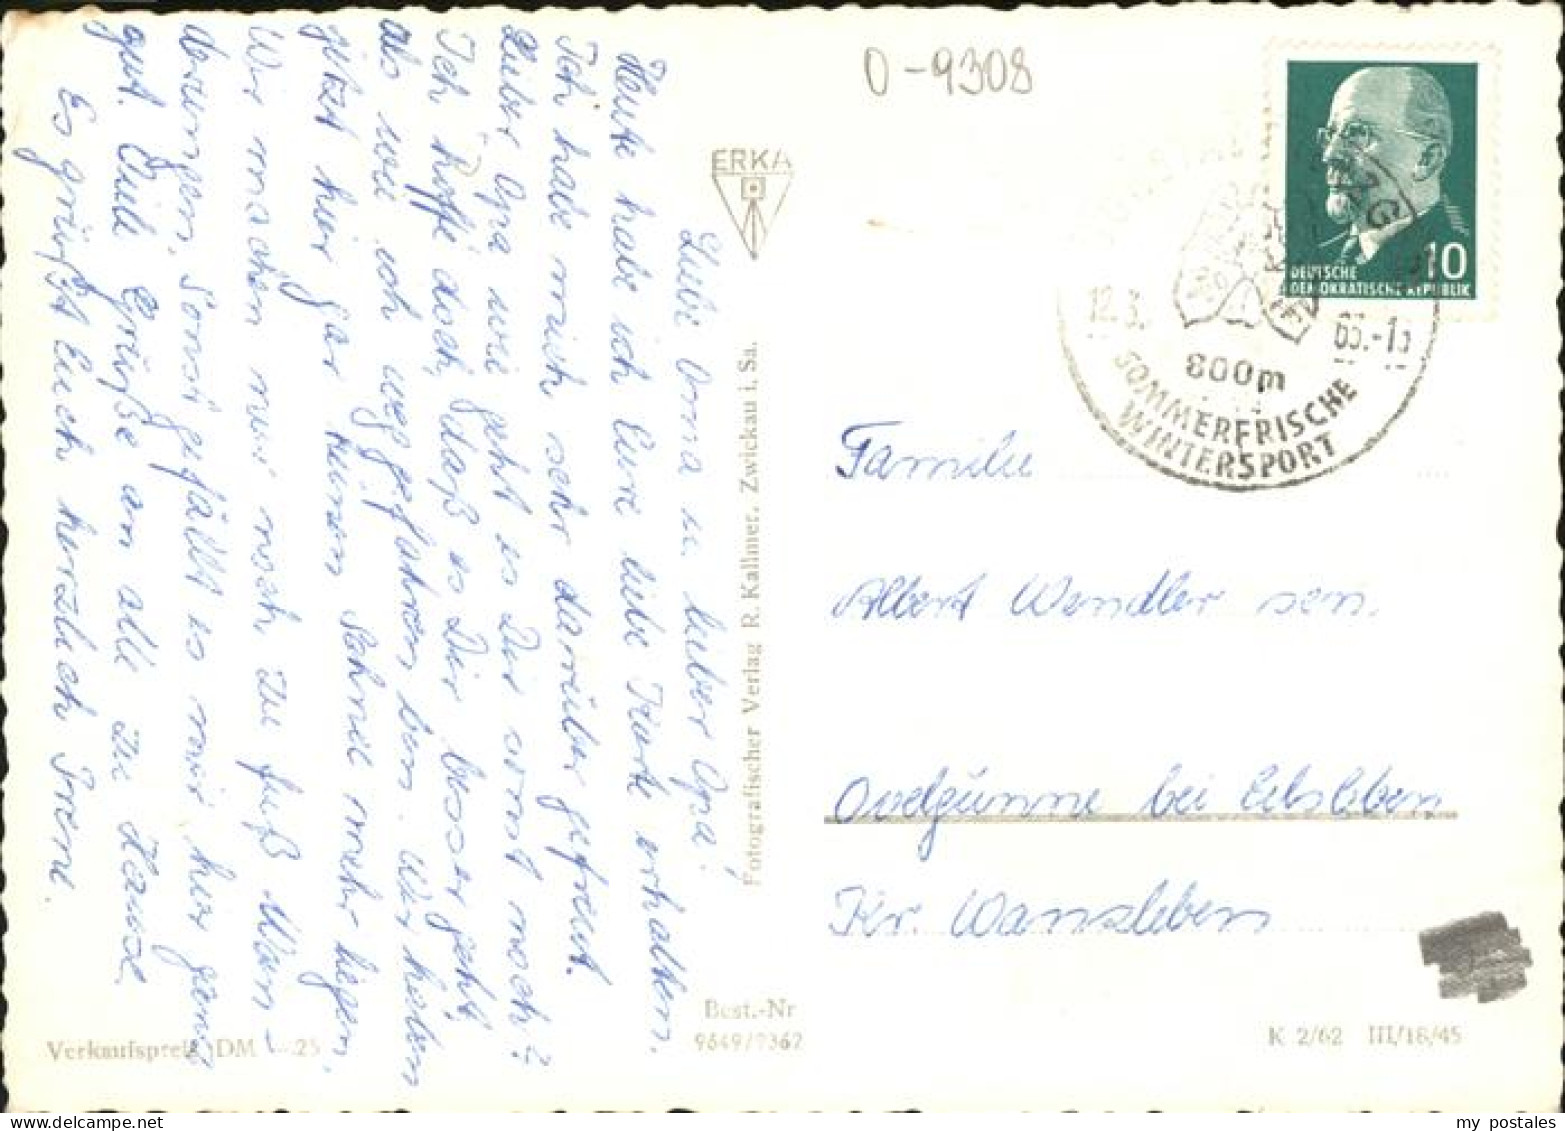 Liebe Oma u. lieber Opa!
Heute habe ich Eure liebe Karte erhalten.
Ich habe mich sehr darüber gefreut.
Lieber Opa wie geht es Dir sonst noch?
Ich hoffe doch, daß es Dir besser geht,
als wie ich weggefahren bin. Wir haben
jetzt hier gar keinen Schnee mehr liegen.
Wir machen nur noch zu Fuß Wan-
derungen. Sonst gefällt es mir hier ganz
gut. Viele Grüße an alle zu Hause
Es grüßt Euch herzlich Irene.
Verkaufspreis DM -.25
ERKA
Fotografischer Verlag R. Kallmer, Zwickau i. Sa.
Best.-Nr
9649/9362
0-9308
DEUTSCHE
DEMOKRATISCHE REPUBLIK
10
12.3.
63.-13
800m
SOMMERFRISCHE
WINTERSPORT
Familie
Albert Wendler sen.
Ovelgünne bei Eilsleben
Kr. Wanzleben
K 2/62 III/18/45
my postales